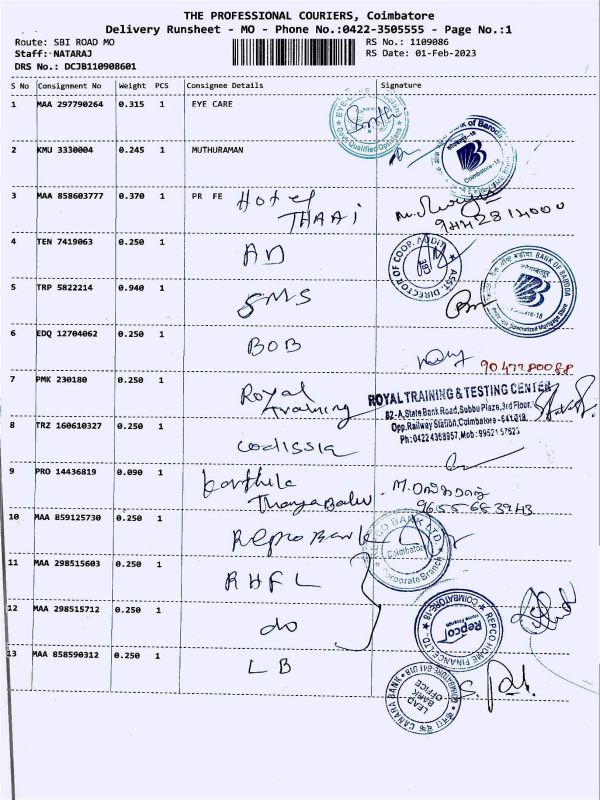 THE PROFESSIONAL COURIERS, Coimbatore
Delivery Runsheet - MO - Phone No.:0422-3505555 - Page No.:1
Route: SBI ROAD MO
RS No.: 1109086
Staff: NATARAJ
RS Date: 01-Feb-2023
DRS No.: DCJB110908601
S No Consignment No Weight PCS Consignee Details Signature
1 MAA 297790264 0.315 1 EYE CARE
2 KMU 3330004 0.245 1 MUTHURAMAN
3 MAA 858603777 0.370 1 PR FE Hotel
THAAI
9442814000
4 TEN 7419063 0.250 1 AD
ASST. DIRECTOR OF COOP. AUDIT
5 TRP 5822214 0.940 1 SMS
BANK OF BARODA
6 EDQ 12704062 0.250 1 BOB
9047780088
7 PMK 230180 0.250 1 Royal
training
ROYAL TRAINING & TESTING CENTER
82-A, State Bank Road, Subbu Plaza, 3rd Floor,
Opp. Railway Station, Coimbatore - 641 018.
8 TRZ 160610327 0.250 1 codissia
9 PRO 14436819 0.090 1
10 MAA 859125730 0.250 1 Repco Bank
REPCO BANK LTD.
Coimbatore
Corporate Branch
11 MAA 298515603 0.250 1 RHFL
12 MAA 298515712 0.250 1 do
REPCO HOME FINANCE LTD.
COIMBATORE-18
Repco
13 MAA 858590312 0.250 1 LB
CANARA BANK
LEAD
BANK
OFFICE